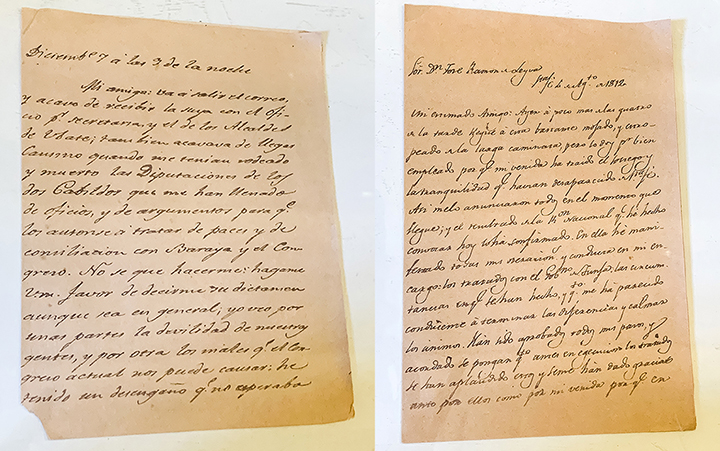 Diciembre 7 á las 3 de la noche
Mi amigo: va á salir el correo,
y acavo de recibir la suya con el ofi-
cio pr. secretaria, y el de los Alcaldes
de Ubate; tambien acavava de llegar
Causmo quando me tenian rodeado
y muerto las Diputaciones de los
dos Cabildos que me han llenado
de oficios, y de argumentos para qe.
los autorise á tratar de paces y de
consiliacion con Baraya y el Con-
greso. No se que hacerme: hagame
Vm. favor de decirme su dictamen
aunque sea en general; yo veo por
unas partes la devilidad de nuestras
gentes, y por otra los males qe. el Con-
greso actual nos puede causar: he
tenido un desengaño qe. no esperaba
Sor. Dn. José Ramon Leyva
Stafé. 6 Agto. 1812
Mi estimado Amigo: Ayer á poco mas las quatro
la tarde llegué á esta bastante mojado, y estro-
peado la larga caminata; pero lo doy pr. bien
empleado por qe. mi venida ha traido el sosiego y
la tranquilidad qe. havian desaparecido Stafé.
Asi melo anunciaron todos en el momento que
llegué; y el resultado la Rn. Nacional qe. he hecho
convocar hoy lo ha confirmado. En ella he mani-
festado todas mis operacions, y conducta en mi en-
cargo: los tratados con el Gobno. Tunja, las circuns-
tancias en qe. se han hecho, y qto. me ha parecido
conducente á terminar las diferencias y calmar
los animos. Han sido aprobados todos mis pasos, y
acordado se pongan qto. antes en execucion los tratados
se han aplaudido estos y seme han dado gracias
tanto por ellos como por mi venida por qe. en